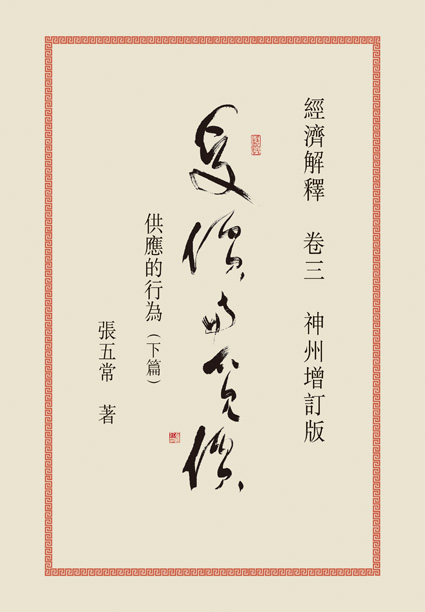 經濟解釋 卷三 神州增訂版
受價與覓價
供應的行為（下篇）
張五常 著